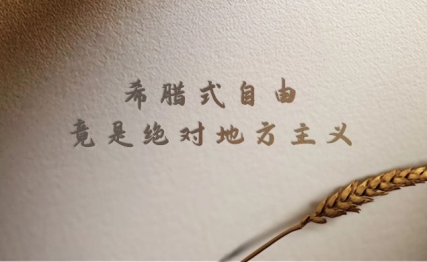 希腊式自由
竟是绝对地方主义